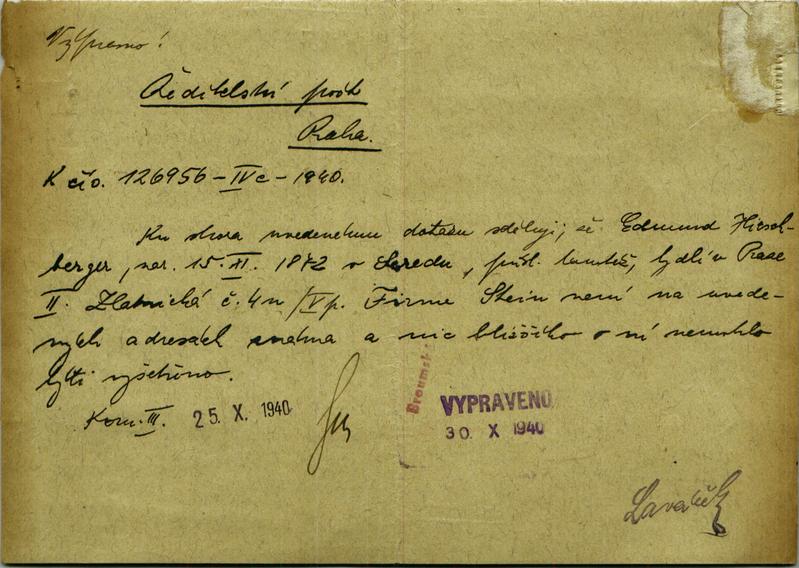 Ředitelství pošt
Praha.
K čís. 126956-IVc-1940.
Ku shora uvedenému dotazu sděluji, že Edmund Hirsch-
berger, nar. 15. XI. 1872 v Seredu, přísl. tamtéž, bydlí v Praze
II. Zlatnická č. 4n /Vp. Firma Stein není na uvede-
ných adresách známa a nic bližšího o ní nemohlo
býti vyšetřeno.
Kom. III. 25. X. 1940
Broumsk
VYPRAVENO
30 X 1940